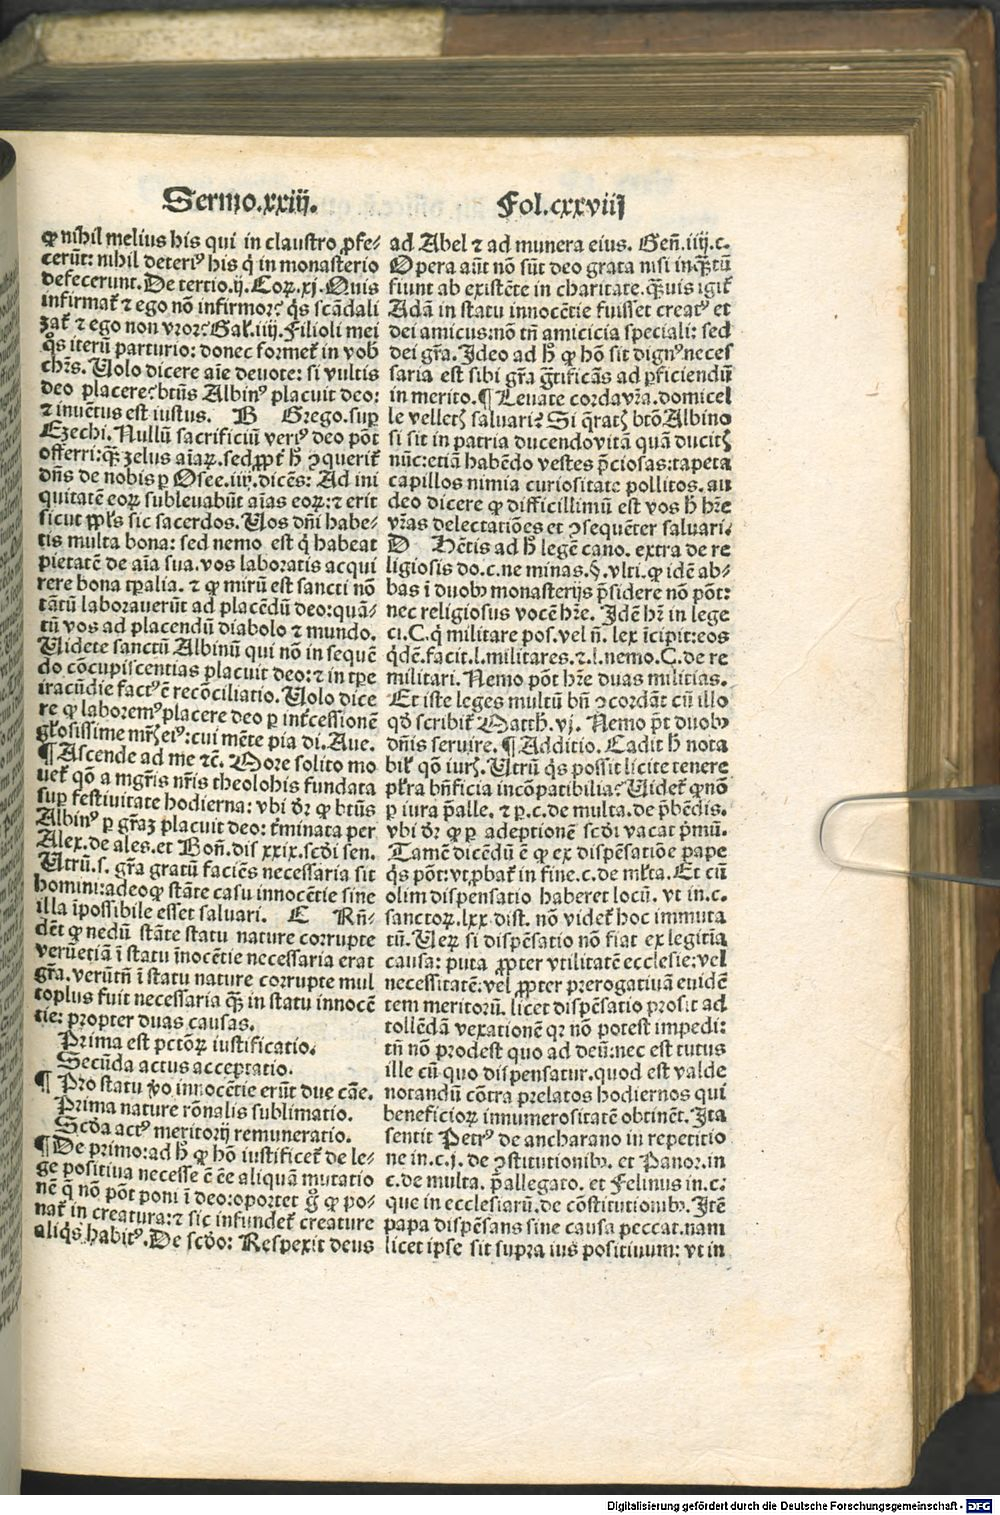 Sermo.xxiij.
Fol.cxxviij
ꝙ nihil melius his qui in claustro ꝓfe-
cerūt: nihil deteriꝰ his q̇ in monasterio
defecerunt. De tertio.ij. Coꝝ.xj. Quis
infirmat̉ ⁊ ego nō infirmor? q̇s scādali
zat̉ ⁊ ego non vror? Gal̉.iiij. Filioli mei
q̇s iterū parturio: donec formet̉ in vob̉
chr̄s. Uolo dicere aīe deuote: si vultis
deo placere? btūs Albinꝰ placuit deo:
⁊ inuētus est iustus. B Grego.suꝑ
Ezechi. Nullū sacrificiū veriꝰ deo pōt
offerri: qꝫ zelus aīaꝝ. sed ꝓpt̉ h̉ ꝯquerit̉
dn̄s de nobis ꝑ Osee.iiij. dicēs: Ad ini
quitatē eoꝝ subleuabūt aīas eoꝝ: ⁊ erit
sicut ppl̉s sic sacerdos. Uos dn̄i habe-
tis multa bona: sed nemo est q̇ habeat
pietatē de aīa sua. vos laboratis acqui
rere bona tꝑalia. ⁊ ꝙ mirū est sancti nō
tātū laborauerūt ad placēdū deo: quā-
tū vos ad placendū diabolo ⁊ mundo.
Uidete sanctū Albinū qui nō in sequē
do cōcupiscentias placuit deo: ⁊ in tꝑe
iracūdie factꝰ ē recōciliatio. Uolo dice
re ꝙ laboremꝰ placere deo ꝑ int̉cessionē
gl̉osissime mr̄is eiꝰ: cui mēte pia di. Aue.
¶ Ascende ad me ⁊c̄. More solito mo
uet̉ qō a mgr̄is nr̄is theolohis fundata
suꝑ festiuitate hodierna: vbi dr̄ ꝙ btūs
Albinꝰ ꝑ gr̄aꝫ placuit deo: t̉minata per
Alex. de ales. et Bon̄. dis xxix. scd̉i sen.
Utrū.s. gr̄a gratū faciēs necessaria sit
homini: adeoqꝫ stāte casu innocētie sine
illa īpossibile esset saluari. C Rn̄-
dēt ꝙ nedū stāte statu nature corrupte
verūetiā ī statu īnocētie necessaria erat
gr̄a. verūtn̄ ī statu nature corrupte mul
toplus fuit necessaria qꝫ in statu innocē
tie: propter duas causas.
Prima est pctōꝝ iustificatio.
Secūda actus acceptatio.
¶ Pro statu v̉o innocētie erūt due cāe.
Prima nature rōnalis sublimatio.
Scd̉a actꝰ meritorij remuneratio.
¶ De primo: ad h̉ ꝙ hō iustificet̉ de le-
ge positiua necesse ē ēe aliquā mutatio
nē q̄ nō pōt poni ī deo: oportet g̉ ꝙ po-
nat̉ in creatura: ⁊ sic infundet̉ creature
aliq̇s habitꝰ. De scd̉o: Respexit deus
ad Abel ⁊ ad munera eius. Gen̄.iiij.c.
Opera aūt nō sūt deo grata nisi inqꝫtū
fiunt ab existēte in charitate. qꝫuis igit̉
Adā in statu innocētie fuisset creatꝰ et
dei amicus: nō tn̄ amicicia speciali: sed
dei gr̄a. Ideo ad h̉ ꝙ hō sit dignꝰ neces
saria est sibi gr̄a g̉tificās ad ꝑficiendū
in merito. ¶ Leuate corda vr̄a. domicel
le velletꝭ saluari? Si q̇ratꝭ btō Albino
si sit in patria ducendo vitā quā ducitꝭ
nūc: etiā habēdo vestes p̄ciosas: tapeta
capillos nimia curiositate pollitos. au
deo dicere ꝙ difficillimū est vos h̉ hr̄e
vr̄as delectatiōes et ꝯsequēter saluari.
D Hētis ad h̉ legē cano. extra de re
ligiosis do.c. ne minas.§. vlti. ꝙ idē ab-
bas ī duobꝰ monasterijs p̄sidere nō pōt:
nec religiosus vocē hr̄e. Idē hr̄ in lege
ci. C. q̇ militare pos. vel n̄. lex īcipit: eos
q̇dē. facit.l. militares. ⁊.l. nemo. C. de re
militari. Nemo pōt hr̄e duas militias.
Et iste leges multū bn̄ ꝯcordāt cū illo
qd̉ scribit̉ Matth̉.vj. Nemo p̄t duobꝰ
dn̄is seruire. ¶ Additio. Cadit h̉ nota
bil̉ qō iurꝭ. Utrū q̇s possit licite tenere
pl̉ra bn̄ficia incōpatibilia? Uidet̉ qꝫ nō
ꝑ iura p̄alle. ⁊ ꝑ.c. de multa. de p̄bēdis.
vbi dr̄ ꝙ ꝑ adeptionē scd̉i vacat p̄mū.
Tamē dicēdū ē ꝙ ex dispēsatiōe pape
q̇s pōt: vt ꝓbat̉ in fine.c. de ml̉ta. Et cū
olim dispensatio haberet locū. vt in.c.
sanctoꝝ. lxx dist. nō videt̉ hoc immuta
tū. Ueꝝ si dispēsatio nō fiat ex legitia
causa: puta ꝓpter vtilitatē ecclesie: vel
necessitatē: vel ꝓpter prerogatiuā euidē
tem meritorū. licet dispēsatio prosit ad
tollēdā vexationē qꝛ nō potest impedi:
tn̄ nō prodest quo ad deū: nec est tutus
ille cū quo dispensatur. quod est valde
notandū cōtra prelatos hodiernos qui
beneficioꝝ innumerositatē obtinēt. Ita
sentit Petrꝰ de ancharano in repetitio
ne in.c.j. de ꝯstitutionibꝰ. et Panor. in
c. de multa. p̄allegato. et Felinus in.c.
que in ecclesiarū. de cōstitutionibꝰ. Itē
papa dispēsans sine causa peccat. nam
licet ipse sit supra ius positiuum: vt in
Digitalisierung gefördert durch die Deutsche Forschungsgemeinschaft - DFG